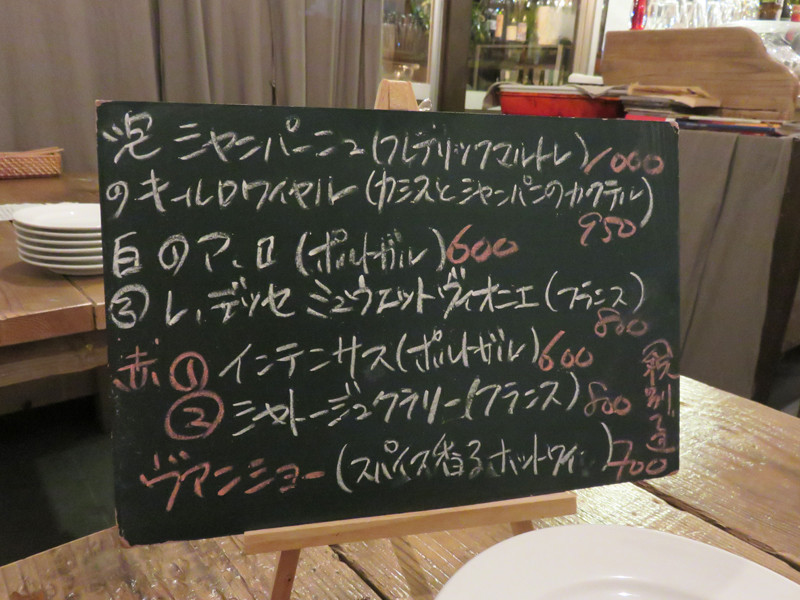 泡 シャンパーニュ(フレデリックマルトレ)1000
のキールロワイヤル(カシスとシャンパンのカクテル)
950
白①ア、ロ(ポルトガル)600
② レ、デッセ ミュウエット ヴィオニエ(フランス)
800
赤①インテンサス(ポルトガル)600
②シャトージュクラリー(フランス)800
ヴァンショー(スパイス香るホットワイン)700